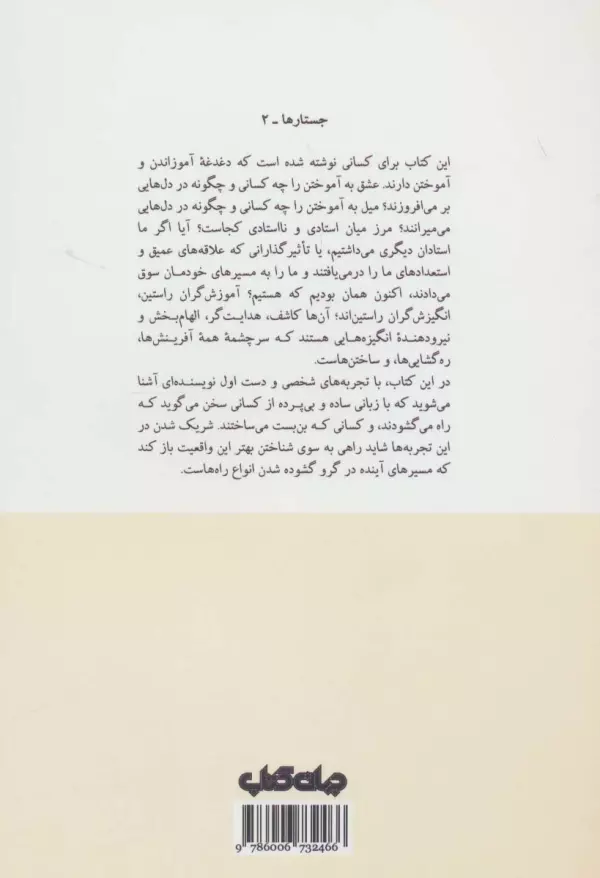 جستارها ـ ۲
این کتاب برای کسانی نوشته شده است که دغدغهٔ آموزاندن و
آموختن دارند. عشق به آموختن را چه کسانی و چگونه در دل‌هایی
بر می‌افروزند؟ میل به آموختن را چه کسانی و چگونه در دل‌هایی
می‌میرانند؟ مرز میان استادی و نااستادی کجاست؟ آیا اگر ما
استادان دیگری می‌داشتیم، یا تأثیرگذارانی که علاقه‌های عمیق و
استعدادهای ما را درمی‌یافتند و ما را به مسیرهای خودمان سوق
می‌دادند، اکنون همان بودیم که هستیم؟ آموزش‌گران راستین،
انگیزش‌گران راستین‌اند؛ آن‌ها کاشف، هدایت‌گر، الهام‌بخش و
نیرودهندهٔ انگیزه‌هایی هستند که سرچشمهٔ همهٔ آفرینش‌ها،
ره‌گشایی‌ها، و ساختن‌هاست.
در این کتاب، با تجربه‌های شخصی و دست اول نویسنده‌ای آشنا
می‌شوید که با زبانی ساده و بی‌پرده از کسانی سخن می‌گوید که
راه می‌گشودند، و کسانی که بن‌بست می‌ساختند. شریک شدن در
این تجربه‌ها شاید راهی به سوی شناختن بهتر این واقعیت باز کند
که مسیرهای آینده در گرو گشوده شدن انواع راه‌هاست.
جهان کتاب
9 786006 732466